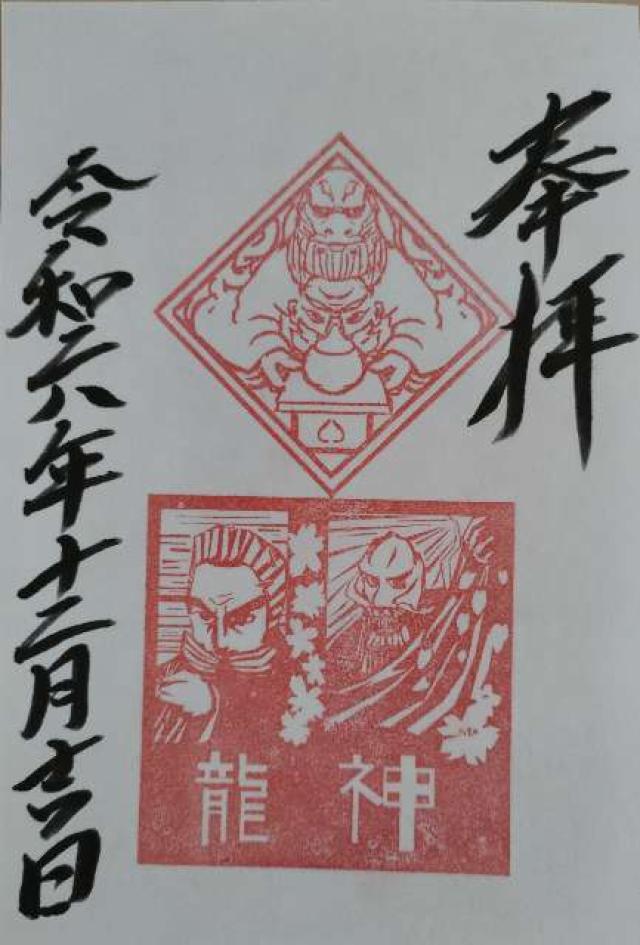 奉拝
龍神
令和六年十二月吉日